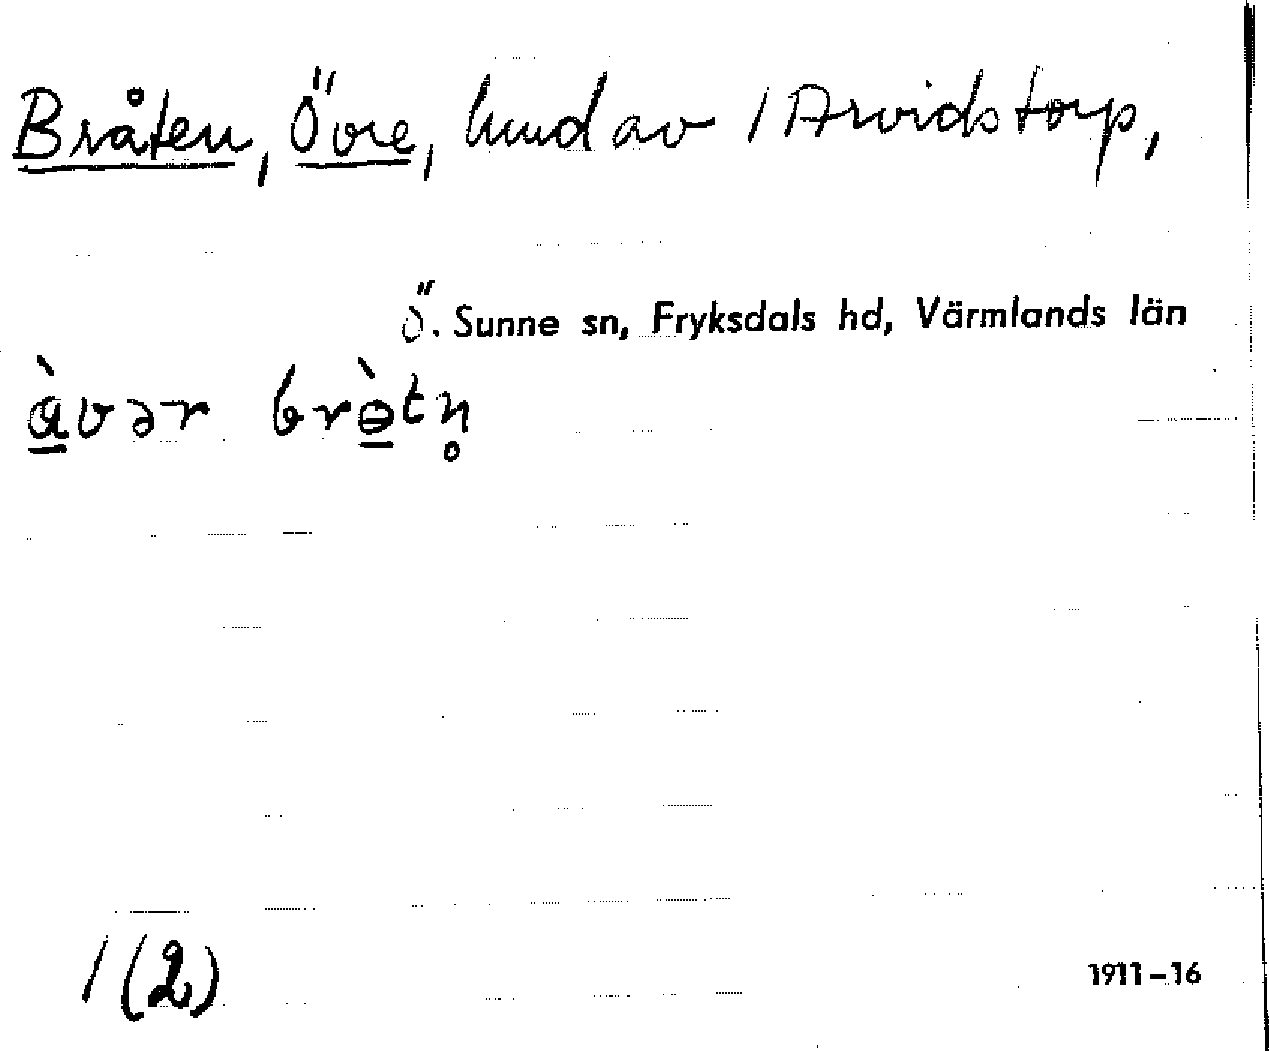 Bråten, Övre, hmd av 1 Arvidstorp,
Ö. Sunne sn, Fryksdals hd, Värmlands län
ɑ̀vər brɵ̀tn̥
1(2)
1911–16